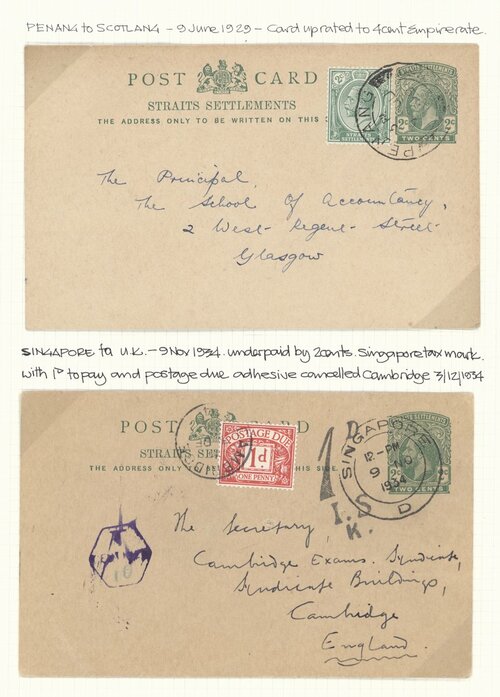 PENANG to SCOTLAND - 9 June 1929 - Card uprated to 4cent Empire rate.
POST CARD
STRAITS SETTLEMENTS
THE ADDRESS ONLY TO BE WRITTEN ON THIS
2c 2c
TWO CENTS
PENANG
The Principal,
The School Of Accountancy,
2 West Regent Street
Glasgow
SINGAPORE to U.K. - 9 Nov 1934. underpaid by 2cents. Singapore tax mark.
with 1D to pay and postage due adhesive cancelled Cambridge 3/12/1934
POST CARD
THIS SIDE
POSTAGE DUE
1d
ONE PENNY
1D
I.S
K.
SINGAPORE
12-PM
9 NO
1934
D
TWO CENTS
10
The Secretary,
Cambridge Exams. Syndicate,
Syndicate Buildings,
Cambridge
England.